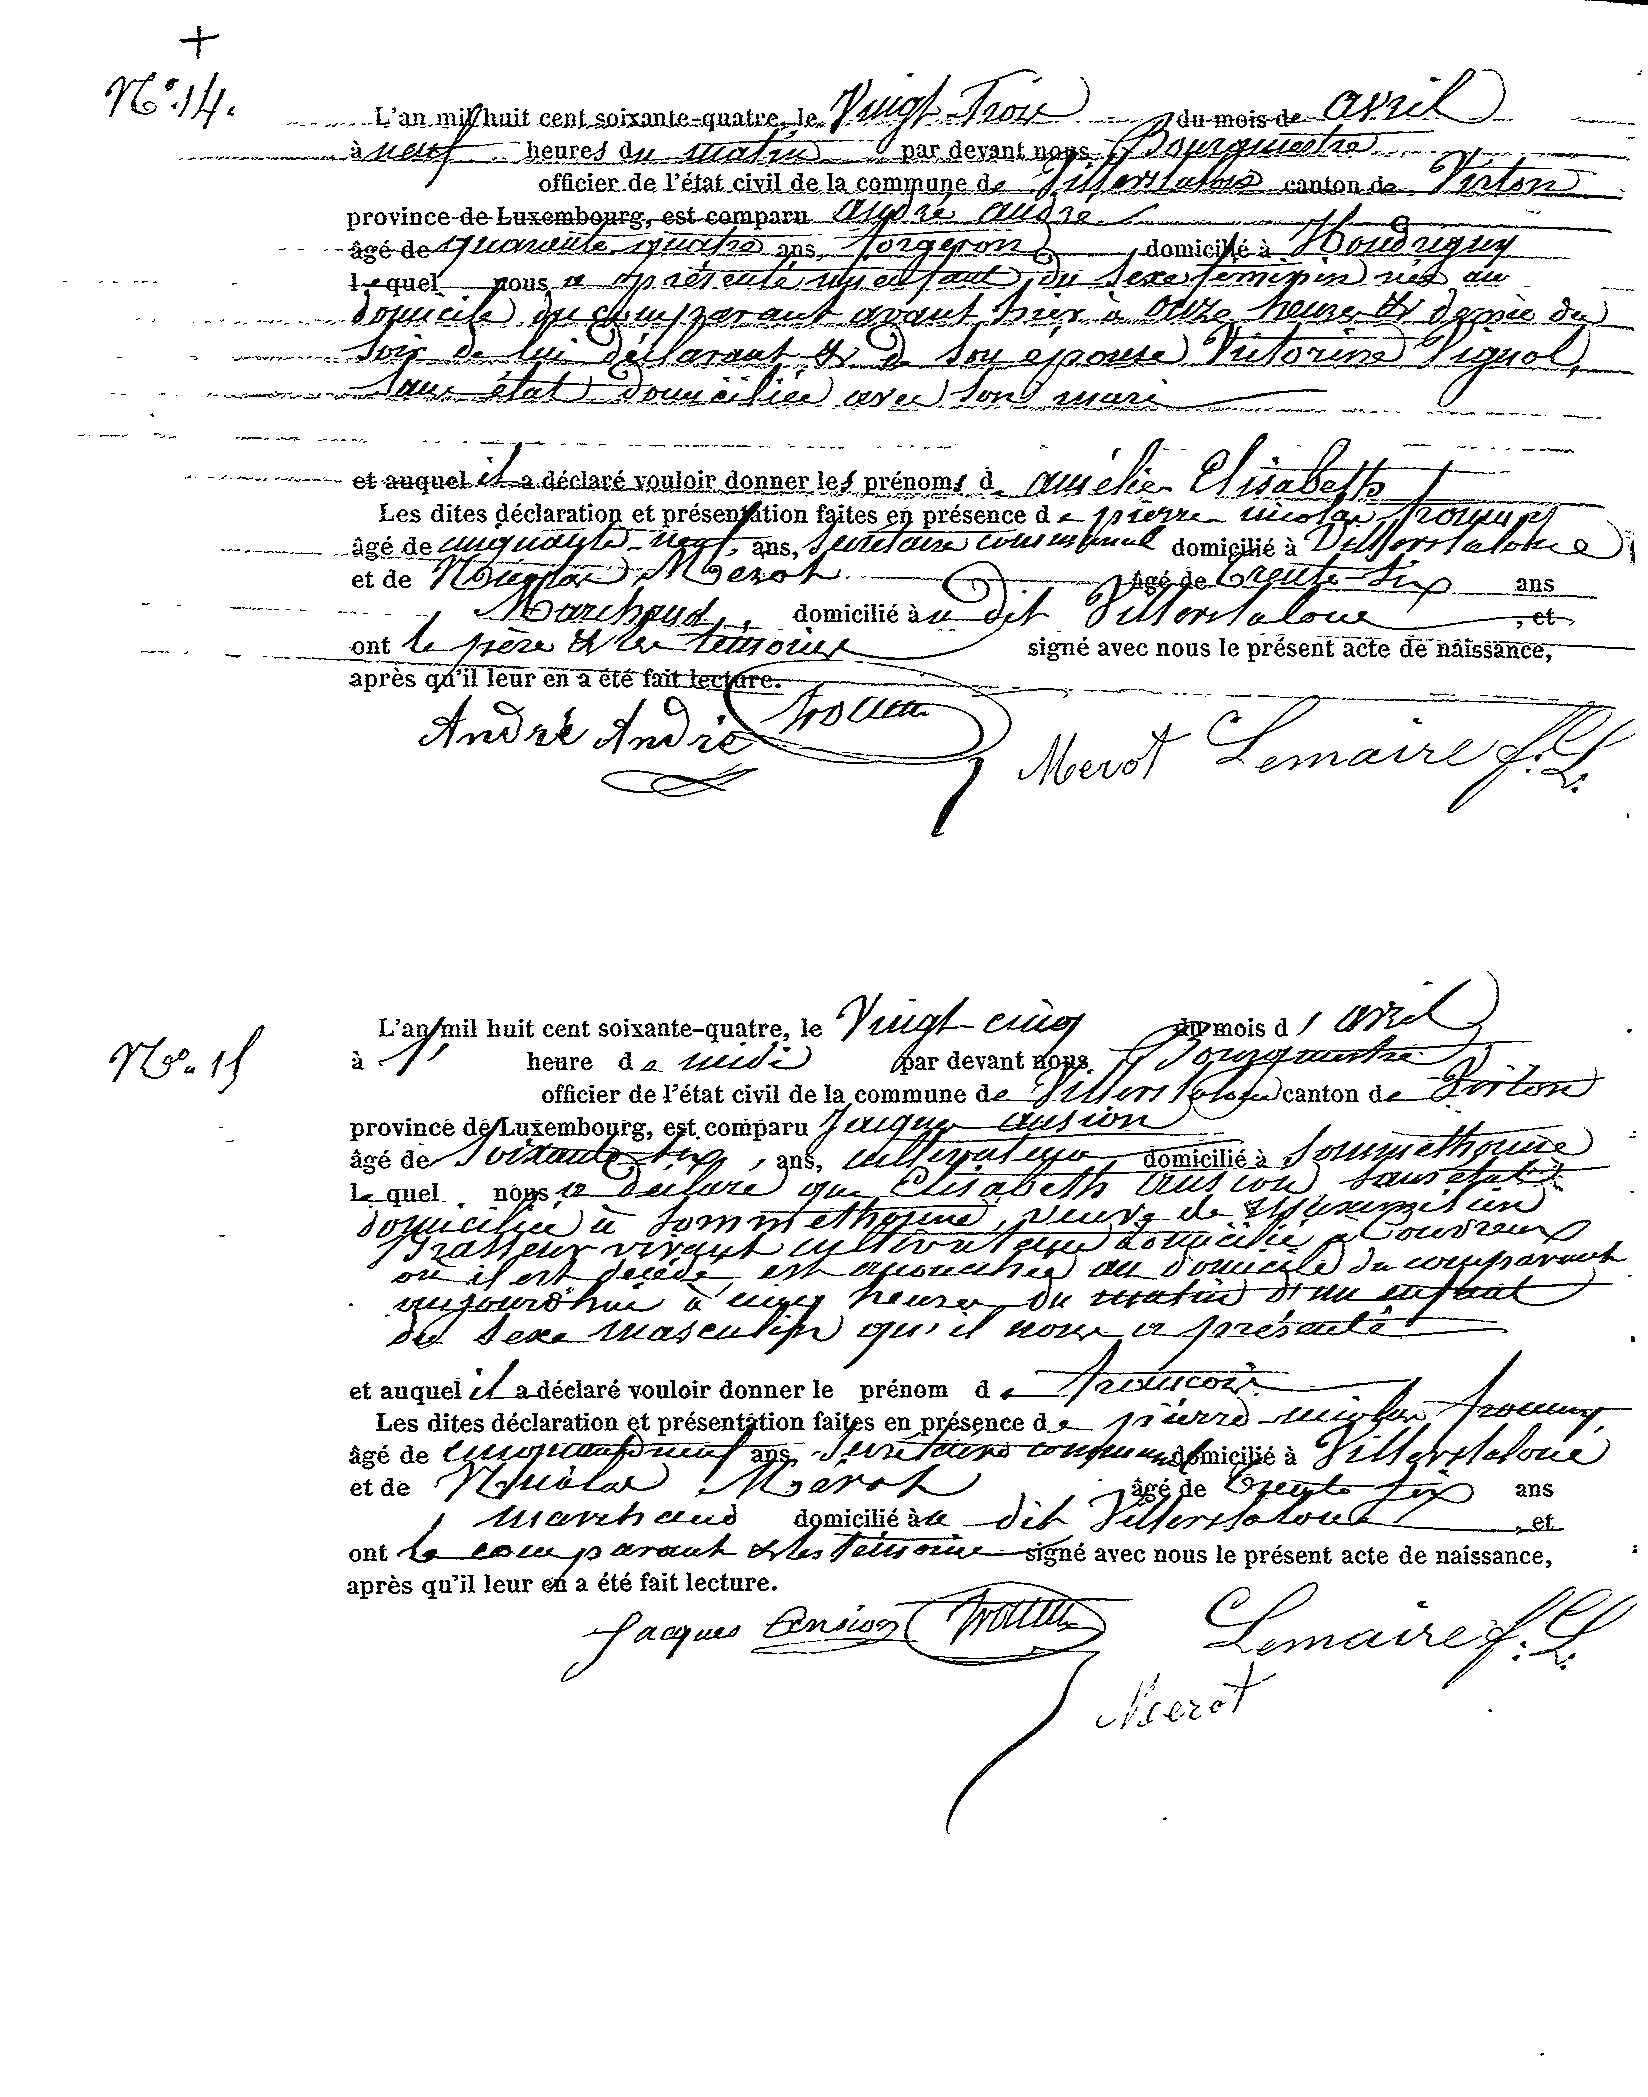 +
N° 14.
L'an mil huit cent soixante-quatre, le Vingt Trois du mois de avril
à neuf heures du matin par devant nous Bourgmestre
officier de l'état civil de la commune de Villerslaloue canton de Virton
province de Luxembourg, est comparu André André
âgé de quarante quatre ans, forgeron domicilié à Houdrigny
lequel nous a présenté un enfant du sexe féminin née au
domicile du comparant avant hier à onze heures & demie du
soir de lui déclarant & de son épouse Victorine Vignol,
sans état domiciliée avec son mari
et auquel il a déclaré vouloir donner les prénoms d Aurélie Elisabeth
Les dites déclaration et présentation faites en présence de pierre nicolas
âgé de cinquante-neuf ans, secrétaire communal domicilié à Villerslaloue
et de Nicolas Merot âgé de trente-six ans
Marchand, domicilié à u dit Villerslaloue , et
ont le père & les témoins signé avec nous le présent acte de naissance,
après qu'il leur en a été fait lecture.
André André
Merot Lemaire f. L.
N° 15
L'an mil huit cent soixante-quatre, le Vingt-cinq du mois d' avril
à 1 heure de midi par devant nous Bourgmestre
officier de l'état civil de la commune de Villerslaloue canton de Virton
province de Luxembourg, est comparu Jacques Ansion
âgé de soixante six ans, cultivateur domicilié à Sommethonne
lequel nous a déclaré que Elisabeth Ansion sans état
domiciliée à Sommethonne, veuve de Maximilien
Brasseur vivant cultivateur domicilié à Couvreux
où il est décédé, est accouchée au domicile du comparant
aujourd'hui à cinq heures du matin d'un enfant
du sexe masculin qu'il nous a présenté
et auquel il a déclaré vouloir donner le prénom de françois
Les dites déclaration et présentation faites en présence de pierre-nicolas
âgé de cinquante neuf ans, secrétaire communal domicilié à Villerslaloue
et de Nicolas Mérot âgé de trente six ans
marchand domicilié à u dit Villerslaloue , et
ont le comparant & les témoins signé avec nous le présent acte de naissance,
après qu'il leur en a été fait lecture.
Jacques Ansion Lemaire f. L.
Merot